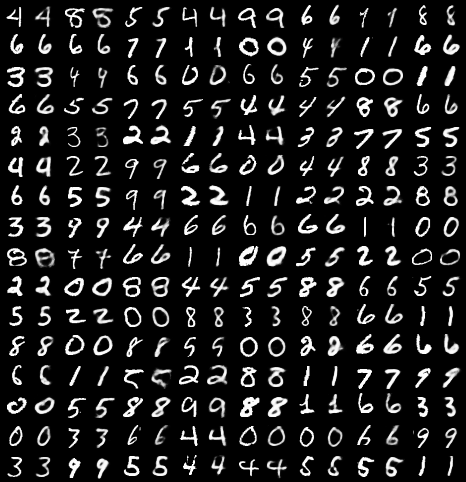 4 4 8 8 5 5 4 4 9 9 6 6 1 1 8 8
6 6 6 6 7 7 1 1 0 0 4 4 1 1 6 6
3 3 4 4 6 6 0 0 6 6 5 5 0 0 1 1
6 6 5 5 7 7 5 5 4 4 4 4 8 8 6 6
2 2 3 3 2 2 1 1 4 4 3 3 7 7 5 5
4 4 2 2 9 9 6 6 0 0 4 4 8 8 3 3
6 6 5 5 9 9 2 2 1 1 2 2 2 2 8 8
3 3 9 9 4 4 6 6 6 6 6 6 1 1 0 0
8 8 7 7 6 6 1 1 0 0 5 5 2 2 0 0
2 2 0 0 8 8 4 4 5 5 8 8 6 6 5 5
5 5 2 2 0 0 8 8 3 3 8 8 6 6 1 1
8 8 0 0 8 8 5 5 0 0 2 2 6 6 6 6
6 6 1 1 5 5 2 2 8 8 1 1 7 7 9 9
0 0 5 5 8 8 9 9 8 8 1 1 6 6 3 3
0 0 3 3 6 6 4 4 0 0 0 0 6 6 9 9
3 3 9 9 5 5 4 4 4 4 5 8 5 5 1 1